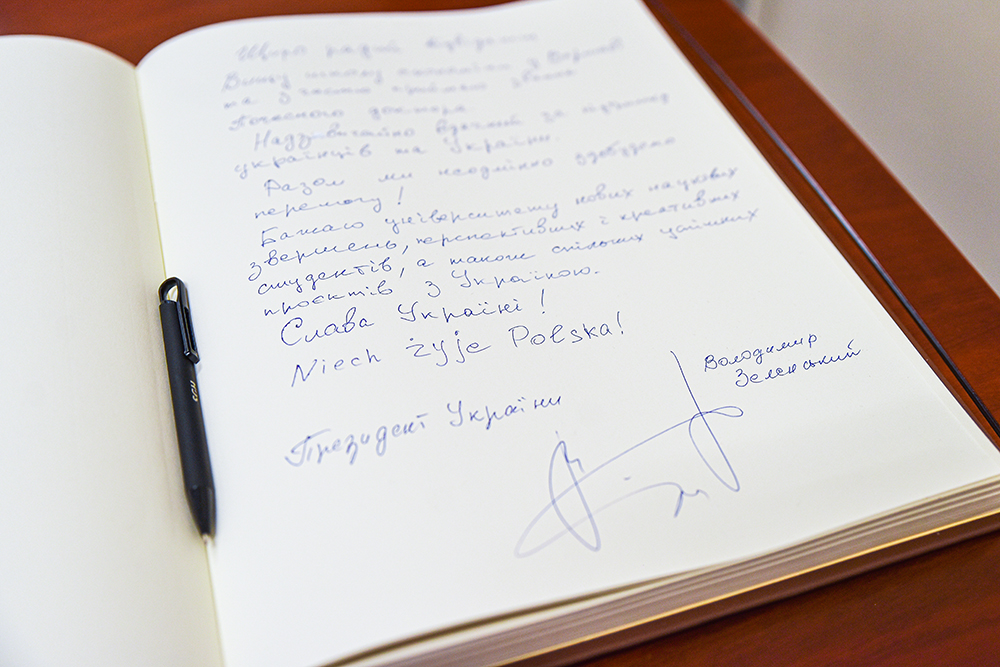 Щиро радий відвідати
Вищу школу                 з Варшаві
та з честю приймаю звання
Почесного доктора
Надзвичайно вдячний за підтримку
українців та України.
Разом ми неодмінно здобудемо
перемогу!
Бажаю університету нових наукових
звершень, перспективних і креативних
студентів, а також спільних успішних
проєктів з Україною.
Слава Україні!
Niech żyje Polska!
Володимир
Зеленський
Президент України